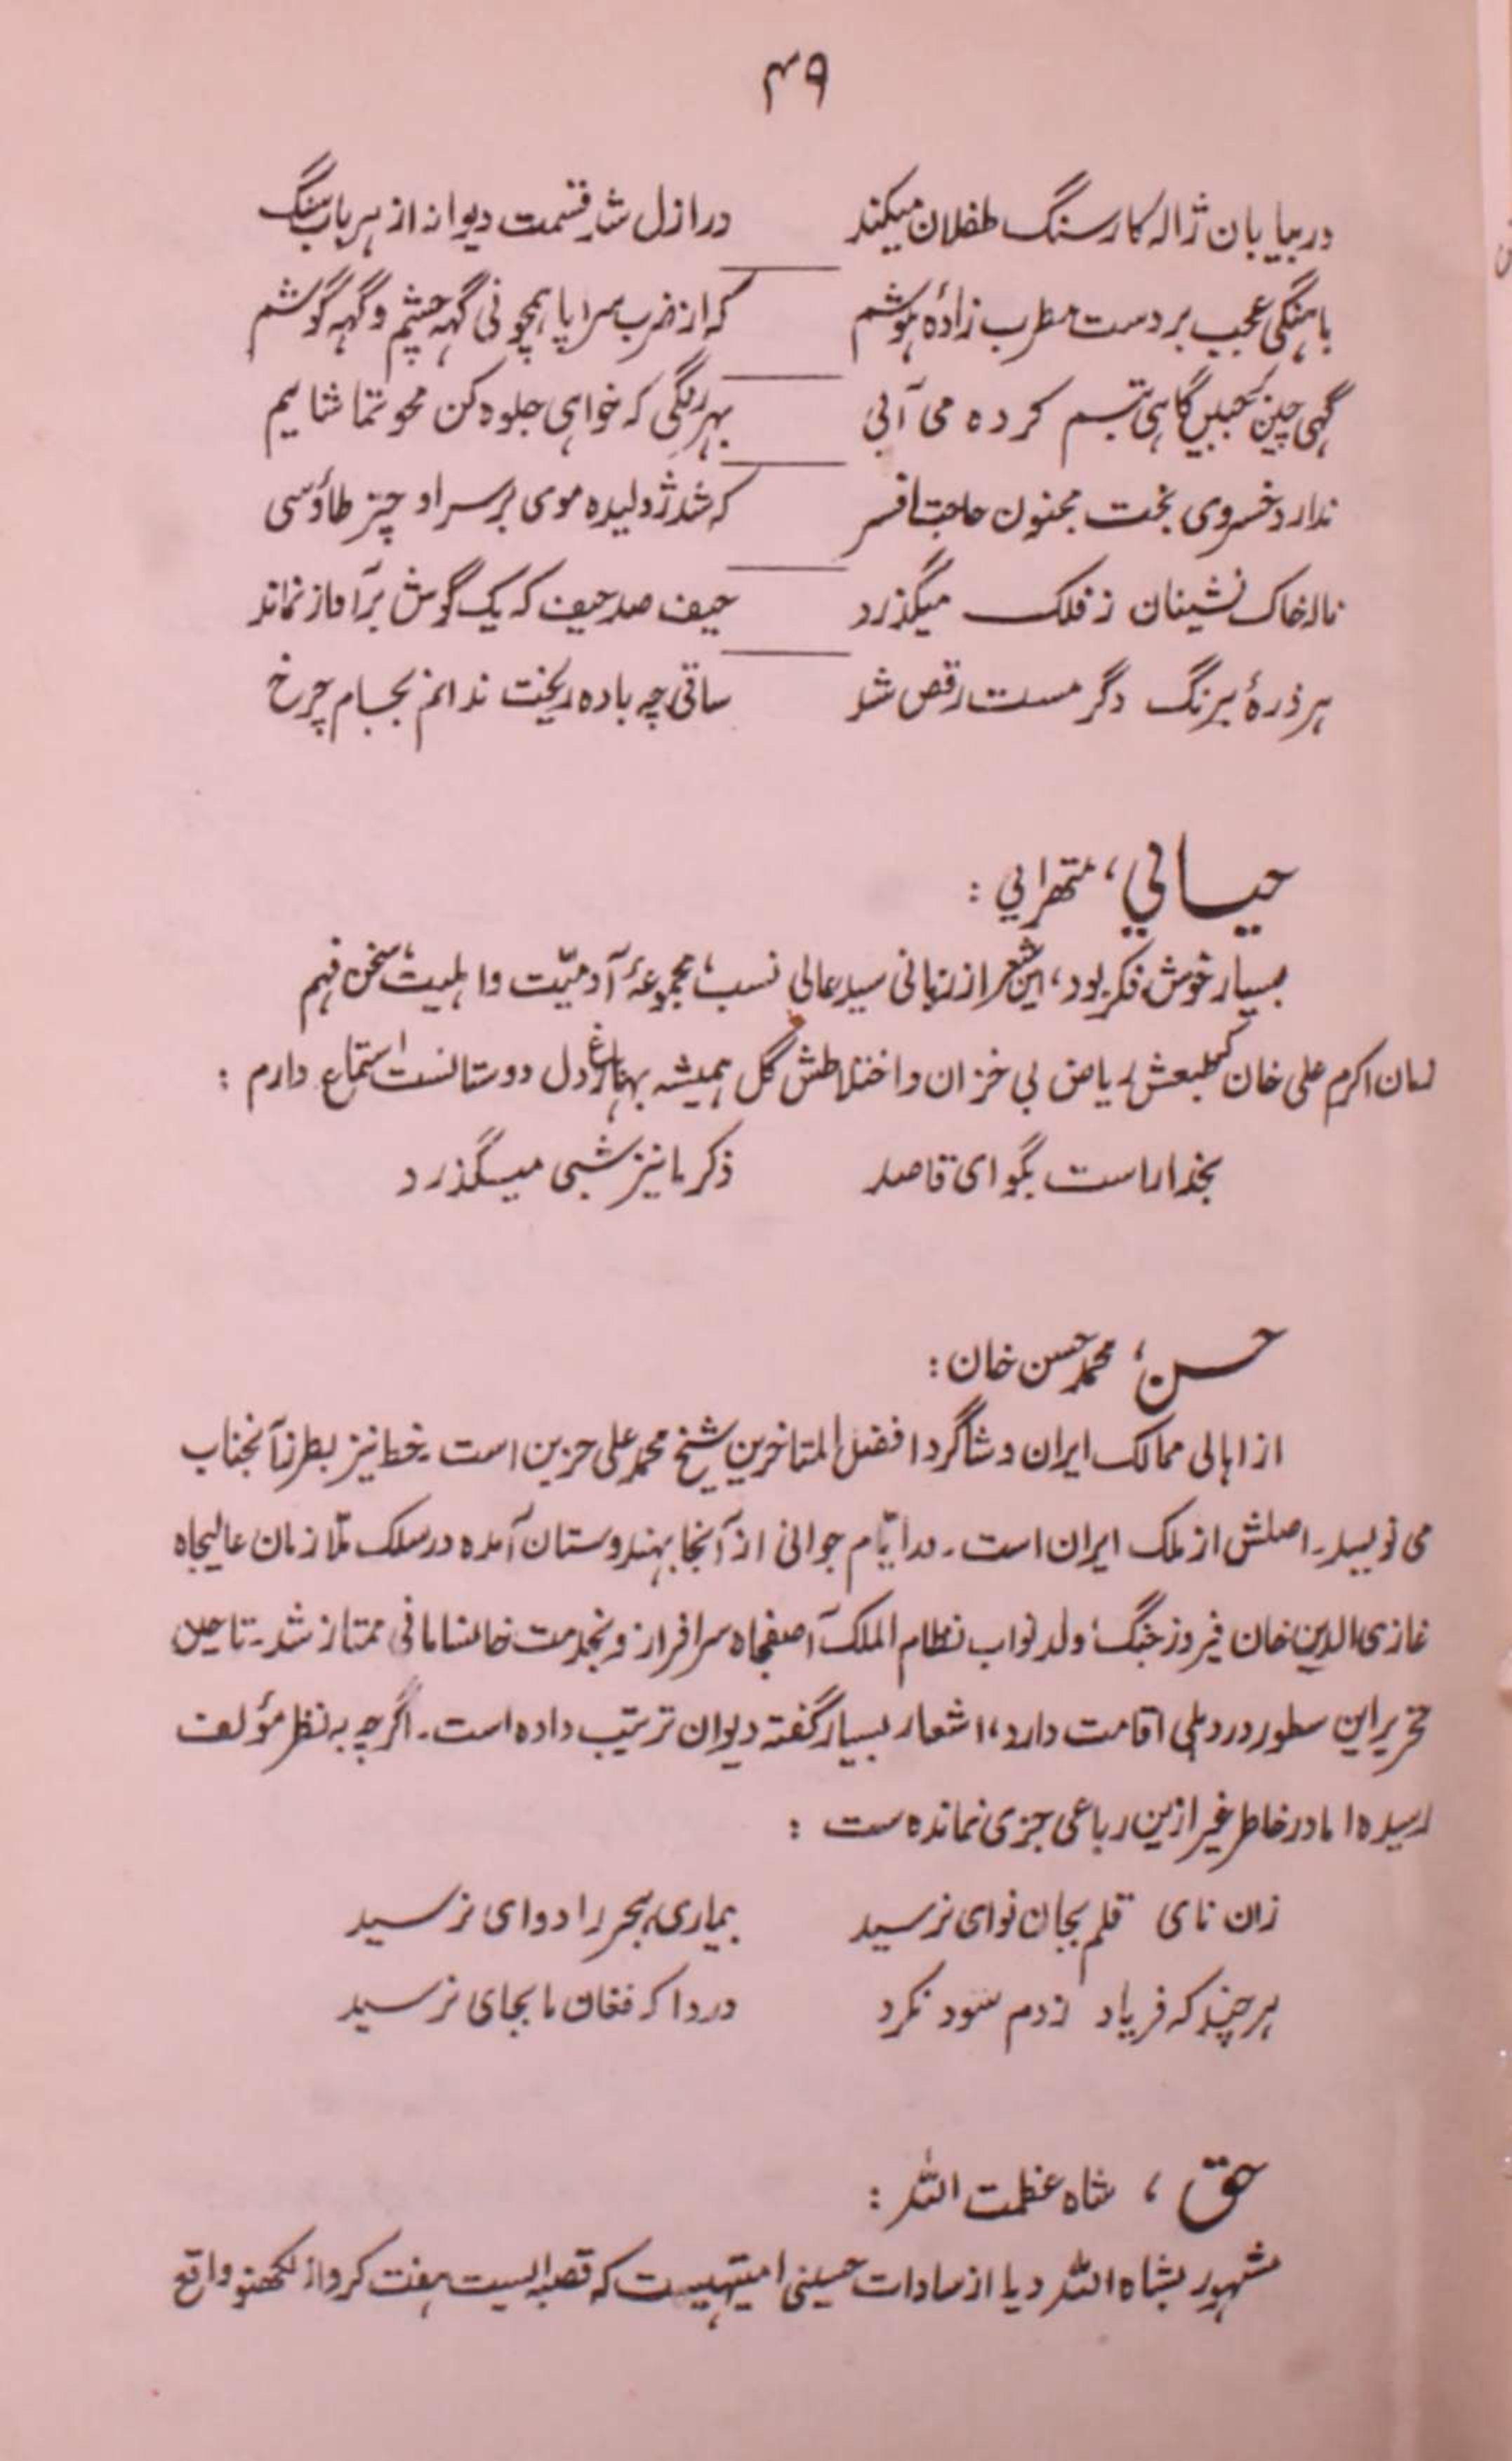 ۴۹
در بیابان ژاله کار سنگ طفلان میکند در ازل شد قسمت دیوانه از هر باب سنگ
باهنگی عجب بر دست مطرب زادهٔ هوشم که از ضرب سراپا همچو نی گهه چشم و گهه گوشم
گهی چین جبین گاهی تبسم کرده می آئی بهر رنگی که خواهی جلوه کن محو تماشایم
ندارد خسروی بخت مجنون حاجت افسر که شد ژولیده موی بر سر او چتر طاؤسی
ناله خاک نشینان ز فلک میگذرد حیف صد حیف که یک گوش بر آواز نماند
هر ذرهٔ برنگ دگر مست رقص شد ساقی چه باده ریخت ندانم بجام چرخ
حیاتي، متهرایي :
بسیار خوش فکر بود، این شعر از زبانی سید عالی نسب، مجموعهٔ آدمیّت و اهلیت، سخن فهم
زمان اکرم علی خان که طبعش ریاض بی خزان و اختلاطش گل همیشه بهار باغ دل دوستانست استماع دارم :
بخدا راست بگو ای قاصد ذکر ما نیز شبی میگذرد
حسن، محمد حسن خان :
از اہالی ممالک ایران و شاگرد افضل المتاخرین شیخ محمد علی حزین است۔ خط نیز بطرز آنجناب
می نویسد۔ اصلش از ملک ایران است۔ در ایّام جوانی از آنجا بهندوستان آمده در سلک ملازمان عالیجاه
غازی الدین خان فیروز جنگ، ولد نواب نظام الملک آصفجاه سرافراز و بخدمت خانسامانی ممتاز شد۔ تا حین
تحریر این سطور در دہلی اقامت دارد، اشعار بسیار گفته دیوان ترتیب داده است۔ اگرچہ به نظر مؤلف
رسیده اما در خاطر غیر ازین رباعی جزی نمانده ست :
زان نای قلم بجان نوای نرسید بیماری ہجر را دوای نرسید
هر چند که فریاد زدم سود نکرد دردا که فغان ما بجای نرسید
حق ، شاه عظمت اللہ :
مشهور بشاه اللہ دیا از سادات حسینی امیتهیست که قصبه ایست هفت کروه از لکهنو واقع